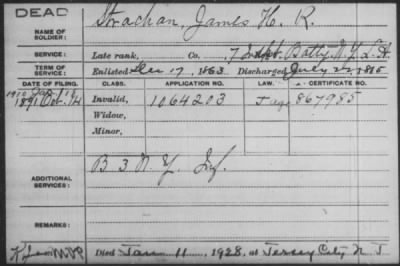 DEAD
NAME OF SOLDIER: Strachan, James H. R.
SERVICE: Late rank, Co. 7 Indpt. Batty. N. Y. L. A.
TERM OF SERVICE: Enlisted Dec 17, 1863 Discharged July 22, 1865
DATE OF FILING. CLASS. APPLICATION NO. LAW. CERTIFICATE NO.
1910 Jan
1891 Oct. 14 Invalid, 1064203 867985
Widow,
Minor,
ADDITIONAL SERVICES: B 3 N. Y. Inf.
REMARKS:
Died Jan 11, 1928, at Jersey City, N J